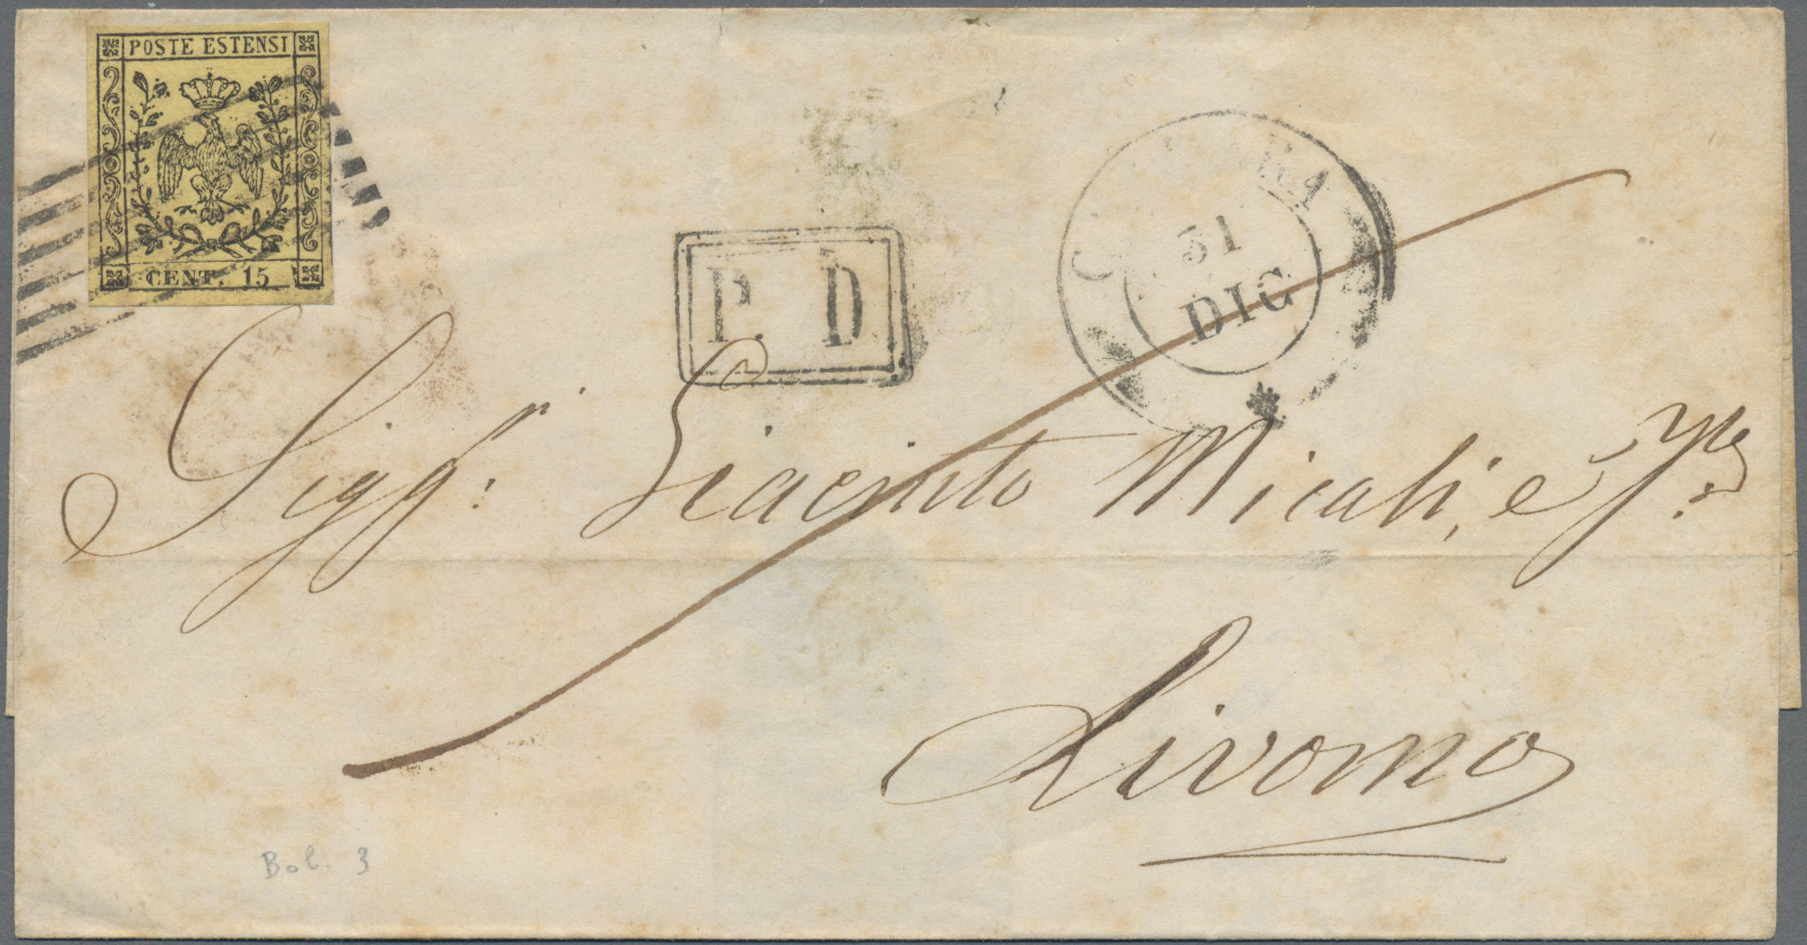 POSTE ESTENSI
CENT. 15
P. D.
31
DIC
Sigg.ri Giacinto Micali, e
Livorno
Bol. 3